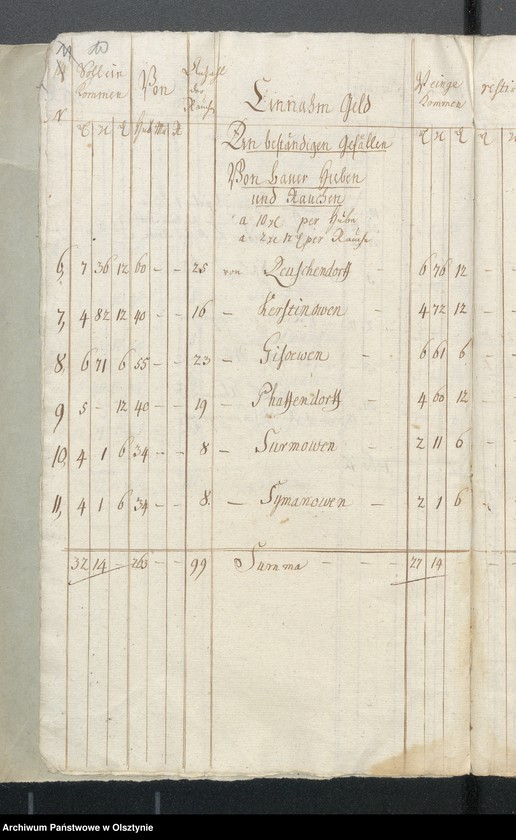 Soll ein
kommen
Von
Anzahl
der
Rauche
Einnahm Geld
eingekommen
N
Hub Mo R
An beständigen Gefällen
Von bauer Huben
und Rauchen
a 10 per Hube
a 2 12 per Rauche
6, 7 36 12 60 - - 25 von Reuschendorff - 6 76 12 -
7, 4 82 12 40 - - 16 - Kerstinowen - 4 72 12 -
8. 6 71 6 55 - - 23 - Gisoewen - 6 61 6 -
9 5 - 12 40 - - 19 - Phaffendorff - 4 60 12 -
10, 4 1 6 34 - - 8 - Surmowen - 2 11 6 -
11, 4 1 6 34 - - 8. - Symanowen - 2 1 6 -
32 14 - 263 - - 99 Summa - - - 27 14
Archiwum Państwowe w Olsztynie